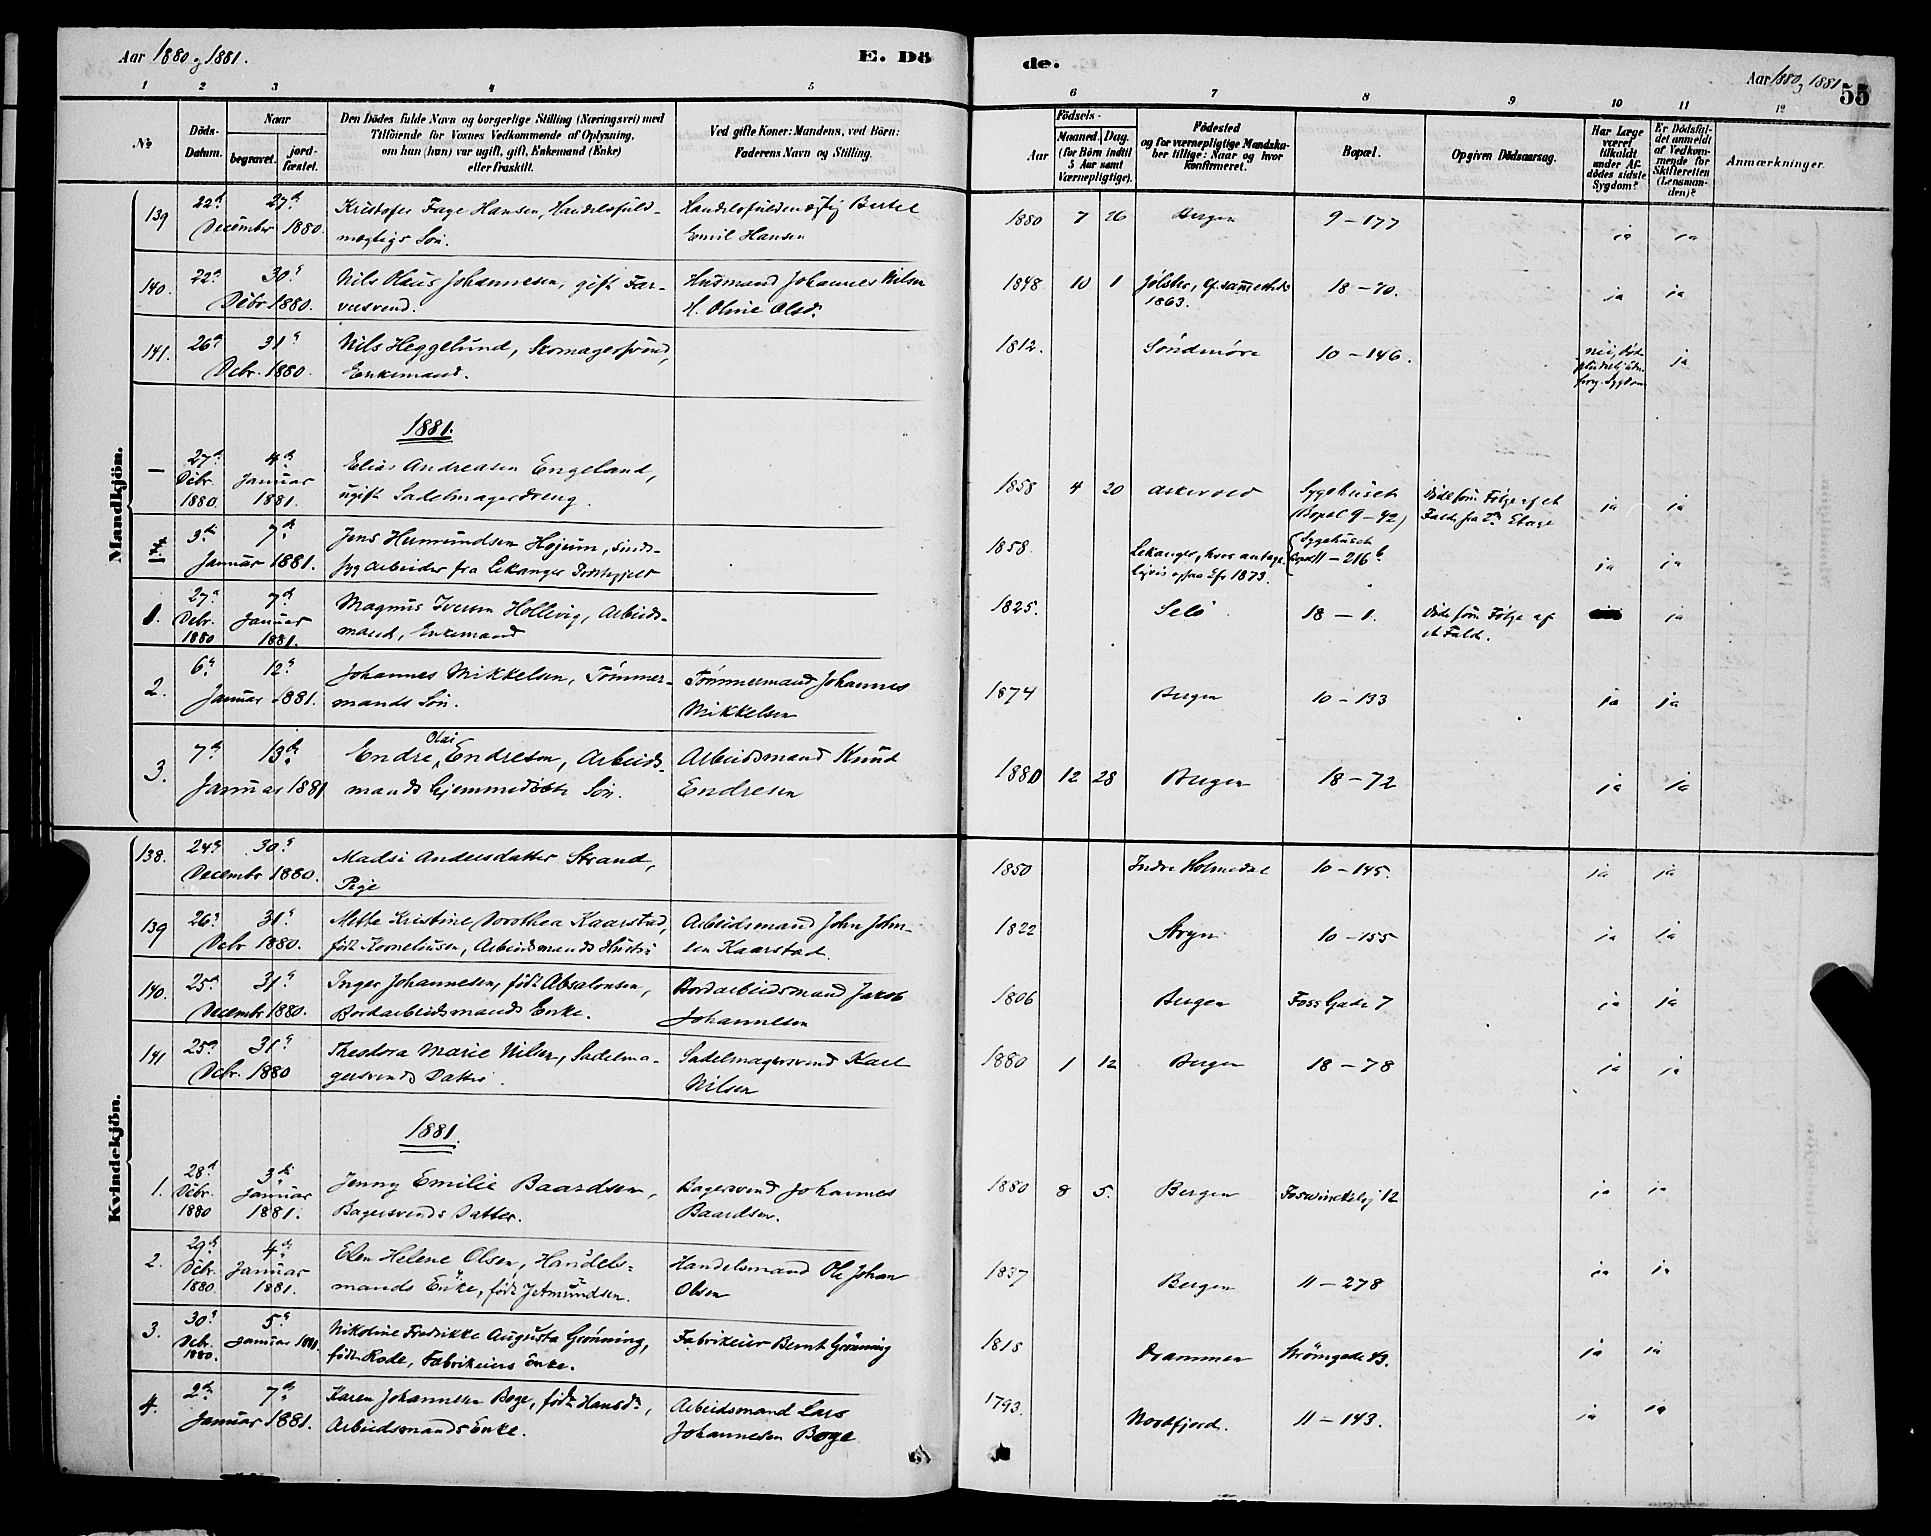 Aar 1880 og 1881.
E. Dö
de.
Aar 1880 og 1881
55
1 2 3 4 5 6 7 8 9 10 11 12
No
Döds-Datum.
Naar
begravet.
jord-fæstet.
Den Dödes fulde Navn og borgerlige Stilling (Næringsvei) med
Tilföiende for Voxnes Vedkommende af Oplysning,
om han (hun) var ugift, gift, Enkemand (Enke)
eller fraskilt.
Ved gifte Koner: Mandens, ved Börn:
Faderens Navn og Stilling.
Födsels-
Aar
Maaned. Dag.
(for Börn indtil
5 Aar samt
Værnepligtige).
Födested
og for værnepligtige Mandska-
ber tillige: Naar og hvor
konfirmeret.
Bopæl.
Opgiven Dödsaarsag.
Har Læge
været
tilkaldt
under Af-
dödes sidste
Sygdom?
Er Dödsfal-
det anmeldt
af Vedkom-
mende for
Skifteretten
(Lensman-
den)?
Anmærkninger.
Mandkjön.
139 22de 27de Kristofer Fage Hansen, Handelsfuld- Handelsfuldmægtig Bertel 1880 7 26 Bergen 9-177 ja ja
December 1880. mægtigs Søn. Emil Hansen
140. 22de 30te Nils Olaus Johannesen, gift Far- Husmand Johannes Nilsen 1848 10 1 Jølster, 18-70. ja ja
Debr 1880. versvend. H. Oline Olsd. 1863.
141. 26de 31te Nils Heggelund, Skomagersvend, 1812. Søndmøre 10-146. nei, ja
Debr. 1880. Enkemand. Sygdom
1881.
1 27de 4de Elias Andreasen Engeland, 1858 4 20 Askevold Sygehuset Døde som Følge af et ja ja
Debr. Januar ugift Sadelmagerdreng. (Bopæl 9-42) Fald fra 2den Etage
1880 1881.
3de 7de Jens Humundsen Højum, sinds- 1858. Lekanger, hvor antage- Sygehuset ja ja
Januar 1881. syg Arbeider fra Lekanger Præstegjeld ligvis 1873. Bopæl 11-216 b
1. 27de 7de Magnus Iversen Hollevig, Arbeids- 1825. Selö 18-1. Døde som Følge af ja
Debr. Januar mand, Enkemand et Fald.
1880 1881.
2. 6te 12te Johannes Mikkelsen, Tømmer- Tømmermand Johannes 1874 Bergen 10-133 ja ja
Januar 1881. mands Søn. Mikkelsen
Olai
3. 7de 13de Endre Endresen, Arbeids- Arbeidsmand Knud 1880 12 28 Bergen 18-72 ja ja
Januar 1881 mands hjemmedøbte Søn. Endresen
Kvindekjön.
138. 24de 30te Madsi Andersdatter Strand, 1850 Indre Holmedal 10-145. ja ja
December 1880. Pige
139 26de 31te Mette Kristine Dorothea Kaarstad, Arbeidsmand John John- 1822 Stryn 10-155 ja ja
Debr 1880. født Korneliusen, Arbeidsmands Hustru sen Kaarstad.
140. 25de 31te Inger Johannesen, født Absalonsen, Bordarbeidsmand Jakob 1806 Bergen Foss Gade 7 ja ja
December 1880. Bordarbeidsmands Enke. Johannesen
141 25de 31te Theodora Marie Nilsen, Sadelma- Sadelmagersvend Karl 1880 1 12 Bergen 18-78 ja ja
Debr. 1880 gersvends Datter. Nilsen
1881.
1. 28de 3die Jenny Emilie Baardsen, Bagersvend Johannes 1880 8 5. Bergen Foswinckelsg 12 ja ja
Debr. Januar Bagersvends Datter. Baardsen.
1880 1881.
2. 29de 4de Elen Helene Olsen, Handels- Handelsmand Ole Johan 1837 Bergen 11-278 ja ja
Debr. Januar mands Enke, født Jetmundsen. Olsen
1880. 1881.
3. 30te 5te Nikoline Fredrikke Augusta Grønning, Fabrikeier Bernt Grønning 1815 Drammen Strømgade 43. ja ja
Debr. Januar 1881. født Rode, Fabrikeiers Enke.
1880.
4. 2den 7de Karen Johannesen Boge, født Hansdr, Arbeidsmand Lars 1793. Nordfjord. 11-143. ja ja
Januar 1881. Arbeidsmands Enke. Johannesen Boge